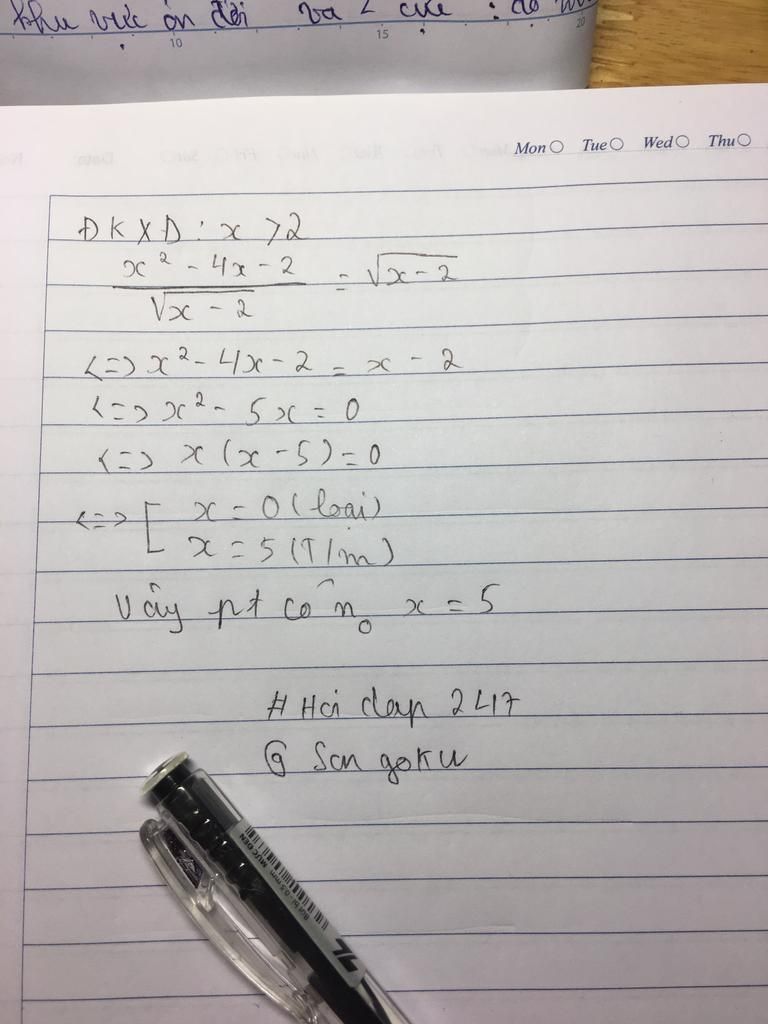 khu vực ôn đới và 2 cực : do
10 15 20
Mon Tue Wed Thu
ĐKXĐ : x > 2
x² - 4x - 2 / √x - 2 = √x - 2
<=> x² - 4x - 2 = x - 2
<=> x² - 5x = 0
<=> x (x - 5) = 0
<=> [ x = 0 (loại)
x = 5 (T/m)
Vậy pt có n₀ x = 5
# Hoi dap 247
@ Son goku
MỰC ĐEN
Bút bi - 0.5 mm
TL